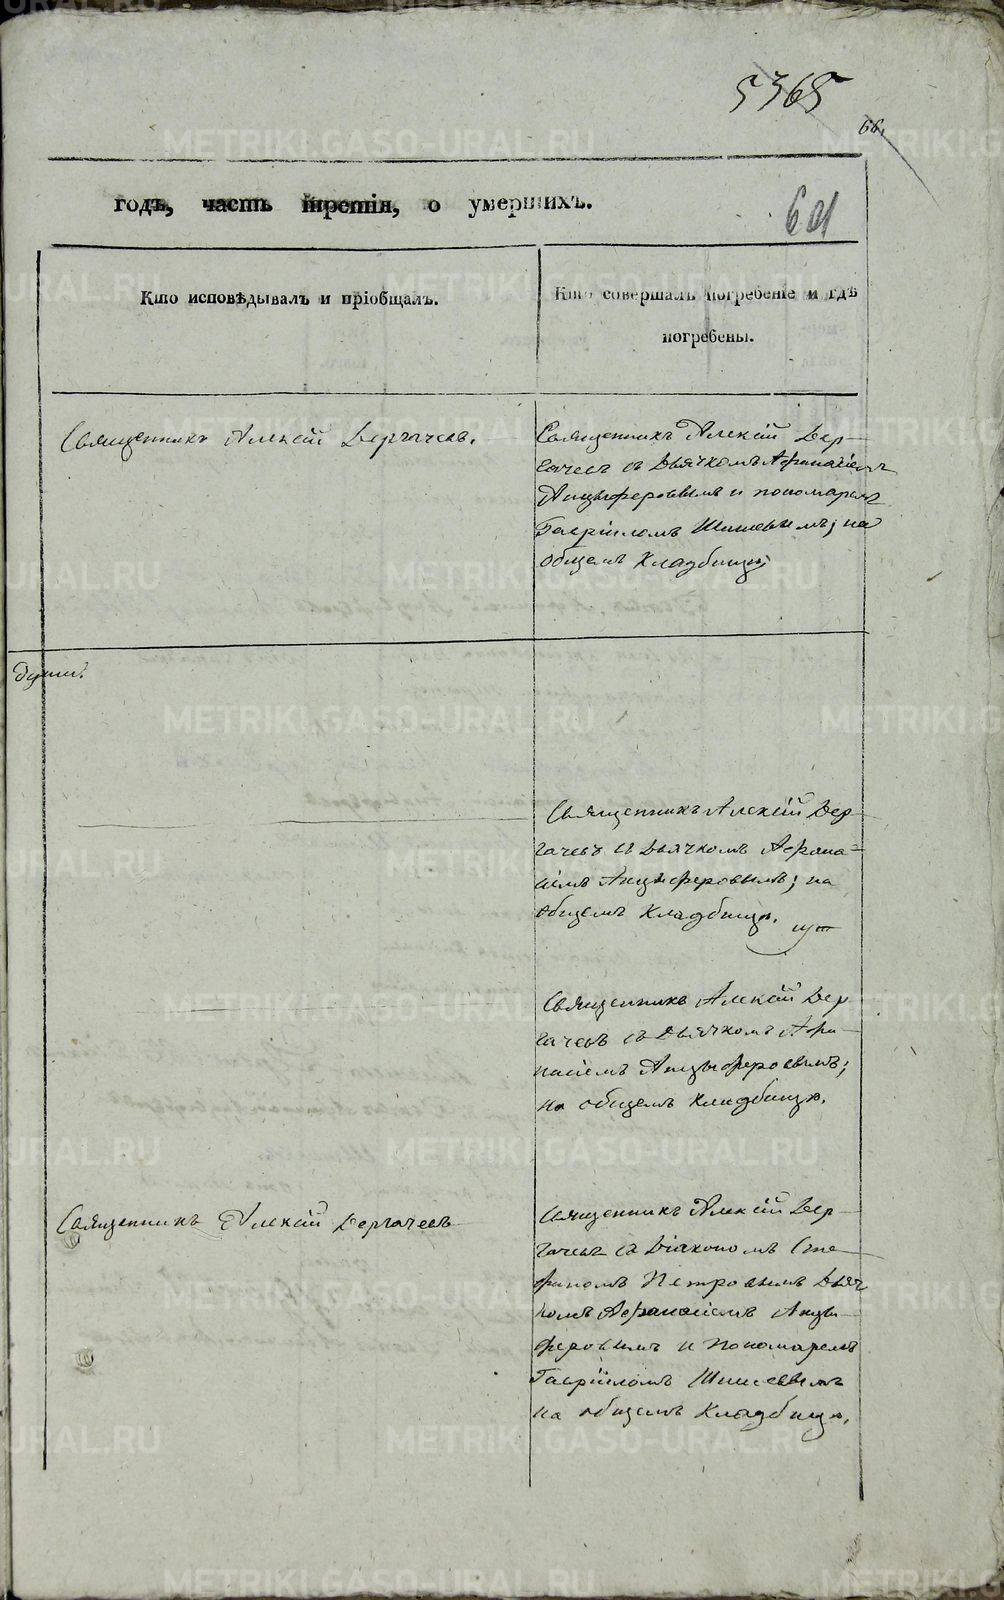 5365
68.
годъ, часть третія, о умершихъ.
601
Кто исповѣдывалъ и пріобщалъ.
Кто совершалъ погребеніе и гдѣ
погребены.
Священникъ Алексій Дергачевъ.
Священникъ Алексій Дер-
гачевъ съ Дьячкомъ Афанасіемъ
Анцыферовымъ и пономаремъ
Гавріиломъ Шишевымъ; на
общемъ кладбищѣ
Священникъ Алексій Дер-
гачевъ съ Дьячкомъ Афана=
сіемъ Анцыферовымъ; на
общемъ кладбищѣ.
Священникъ Алексій Дер
гачевъ съ Дьячкомъ Афа-
насіемъ Анцыферовымъ;
на общемъ кладбищѣ.
Священникъ Алексій Дергачевъ
Священникъ Алексій Дер-
гачевъ съ Діакономъ Сте-
фаномъ Петровымъ Дьяч
комъ Афанасіемъ Анцы-
феровымъ и Пономаремъ
Гавріиломъ Шишевымъ
на общемъ кладбищѣ.
METRIKI.GASO-URAL.RU